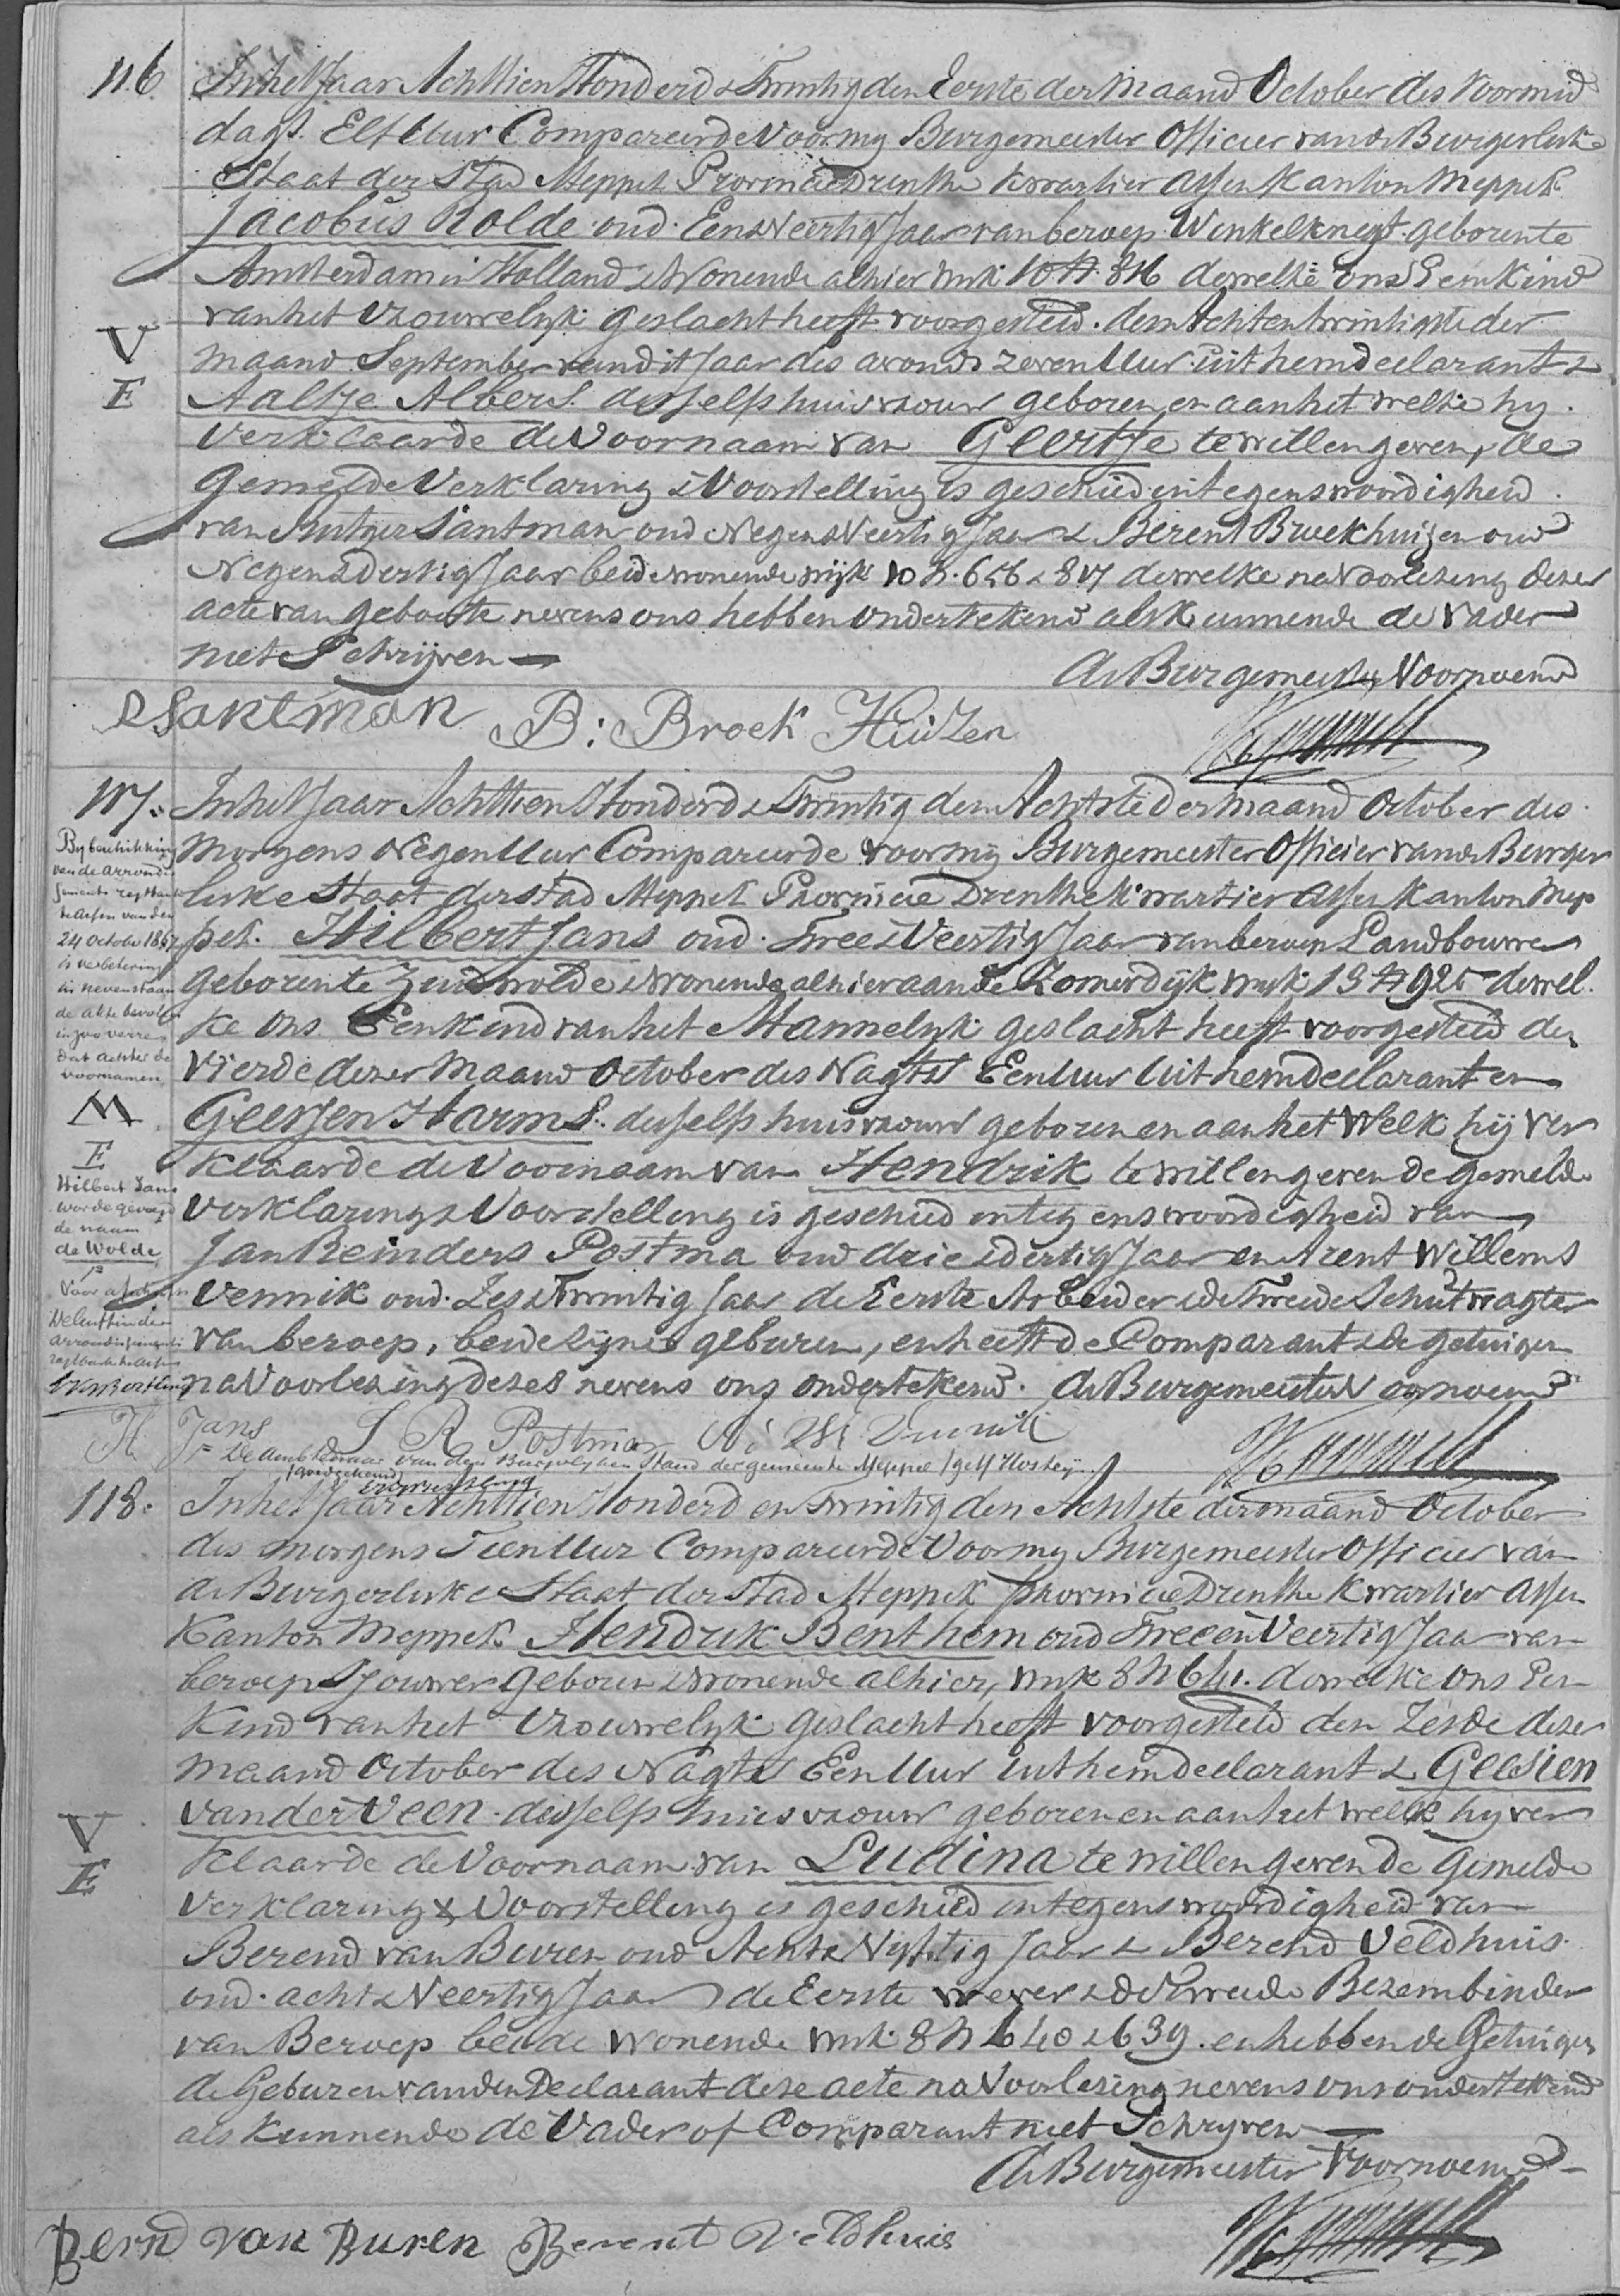 116 In het Jaar Achttien Honderd & Twintig den Eerste der Maand October des Voormid
dags. Elf Uur Compareerde Voor my Burgemeester Officier van de Burgerlike
Staat der Stad Meppel Provincie Drenthe Kwartier Assen Kanton Meppel
Jacobus Rolde oud Een & Veertig Jaar van beroep Winkelknegt geboren te
Amsterdam in Holland & Wonende alhier Wyk 10 N. 816 dewelke ons Een Kind
van het Vrouwelyk geslacht heeft voorgesteld. den Achtentwintigste der
V
maand September van dit Jaar des avonds zeven Uur uit hem declarant &
E
Aaltje Albers desselfs huisvrouw geboren en aan het welke hy
Verklaarde de Voornaam van Geertje te willen geven, de
Gemelde Verklaring & Voorstelling is geschied in tegenswoordigheid
van Rutger Santman oud Negen & Veertig Jaar & Berent Broekhuizen oud
Negen & dertig Jaar beide wonende wyk 10 N. 656 & 817 dewelke na Voorlezing dezer
acte van geboorte nevens ons hebben ondertekend als Kunnende de Vader
niet Schrijven
de Burgemeester Voornoemd
R Santman B: Broek Huizen
117. In het Jaar Achttien Honderd & Twintig den Achtste der maand October des
Morgens Negen Uur Compareerde voor my Burgemeester Officier van de Burger
like Staat der Stad Meppel Provincie Drenthe Kwartier Assen Kanton Mep
pel. Hilbert Jans oud Twee & Veertig Jaar van beroep Landbouwer
geboren te Zuidwolde & Wonende alhier aan de Zomerdijk wyk 13 N 925 dewel
ke ons Een Kind van het Mannelyk geslacht heeft voorgesteld den
Vierde dezer Maand October des Nagts Een Uur Uit hem declarant en
Geesjen Harms. desselfs huisvrouw geboren en aan het Welk hij Ver
klaarde de Voornaam van Hendrik te willen geven de gemelde
Verklaring & Voorstelling is geschied in tegenswoordigheid van
Jan Reinders Postma oud drie & dertig Jaar en Arent Willems
Vennik oud Zes & Twintig Jaar de Eerste Arbeider & de Tweede Schutwagter
van beroep, beide zijne geburen, en heeft de Comparant & de getuigen
na Voorlezing dezes nevens ons ondertekend. de Burgemeester Voornoemd
By beschikking
van de arrondis
sements regtbank
te Assen van den
24 October 1867
is verbetering
der nevenstaan
de akte bevolen
in zoo verre
dat achter de
voornamen
M
E
Hilbert Jans
worde gevoegd
de naam
de Wolde
H Jans J R Postma
= De ambtenaar van den Burgerlyken Stand der gemeente Meppel
118. In het Jaar Achttien Honderd en Twintig den Achtste der maand October
des morgens Tien Uur Compareerde Voor my Burgemeester Officier van
de Burgerlike Staat der Stad Meppel Provincie Drenthe Kwartier Assen
Kanton Meppel. Hendrik Benthem oud Twee en Veertig Jaar van
beroep Sjouwer geboren & wonende alhier, wyk 8 N 641. dewelke ons Een
Kind van het Vrouwelyk geslacht heeft voorgesteld den Zesde dezer
maand October des Nagts Een Uur uit hem declarant & Geesien
van der Veen desselfs huisvrouw geboren en aan het welk hy ver
V
E
klaarde de Voornaam van Ludina te willen geven de Gemelde
Verklaring & Voorstelling is geschied in tegenswoordigheid van
Berend van Buren oud Acht & Vyftig Jaar & Berend Veldhuis
oud acht & Veertig Jaar de Eerste wever & de Tweede Bezembinder
van Beroep beide Wonende wyk 8 N 640 & 639. en hebben de Getuigen
de Geburen van den Declarant deze acte na Voorlezing nevens ons ondertekend
als Kunnende de Vader of Comparant niet Schryven
de Burgemeester Voornoemd
Bernd van Buren Berent Veldhuis